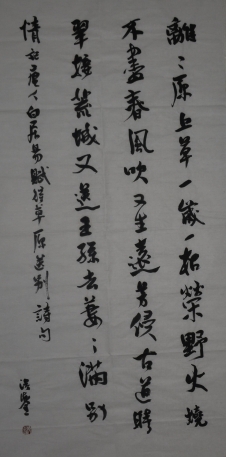 離〻原上草一歲一枯榮野火燒
不盡春風吹又生遠芳侵古道晴
翠接荒城又送王孫去萋〻滿別
情 唐人白居易賦得草原送別詩句